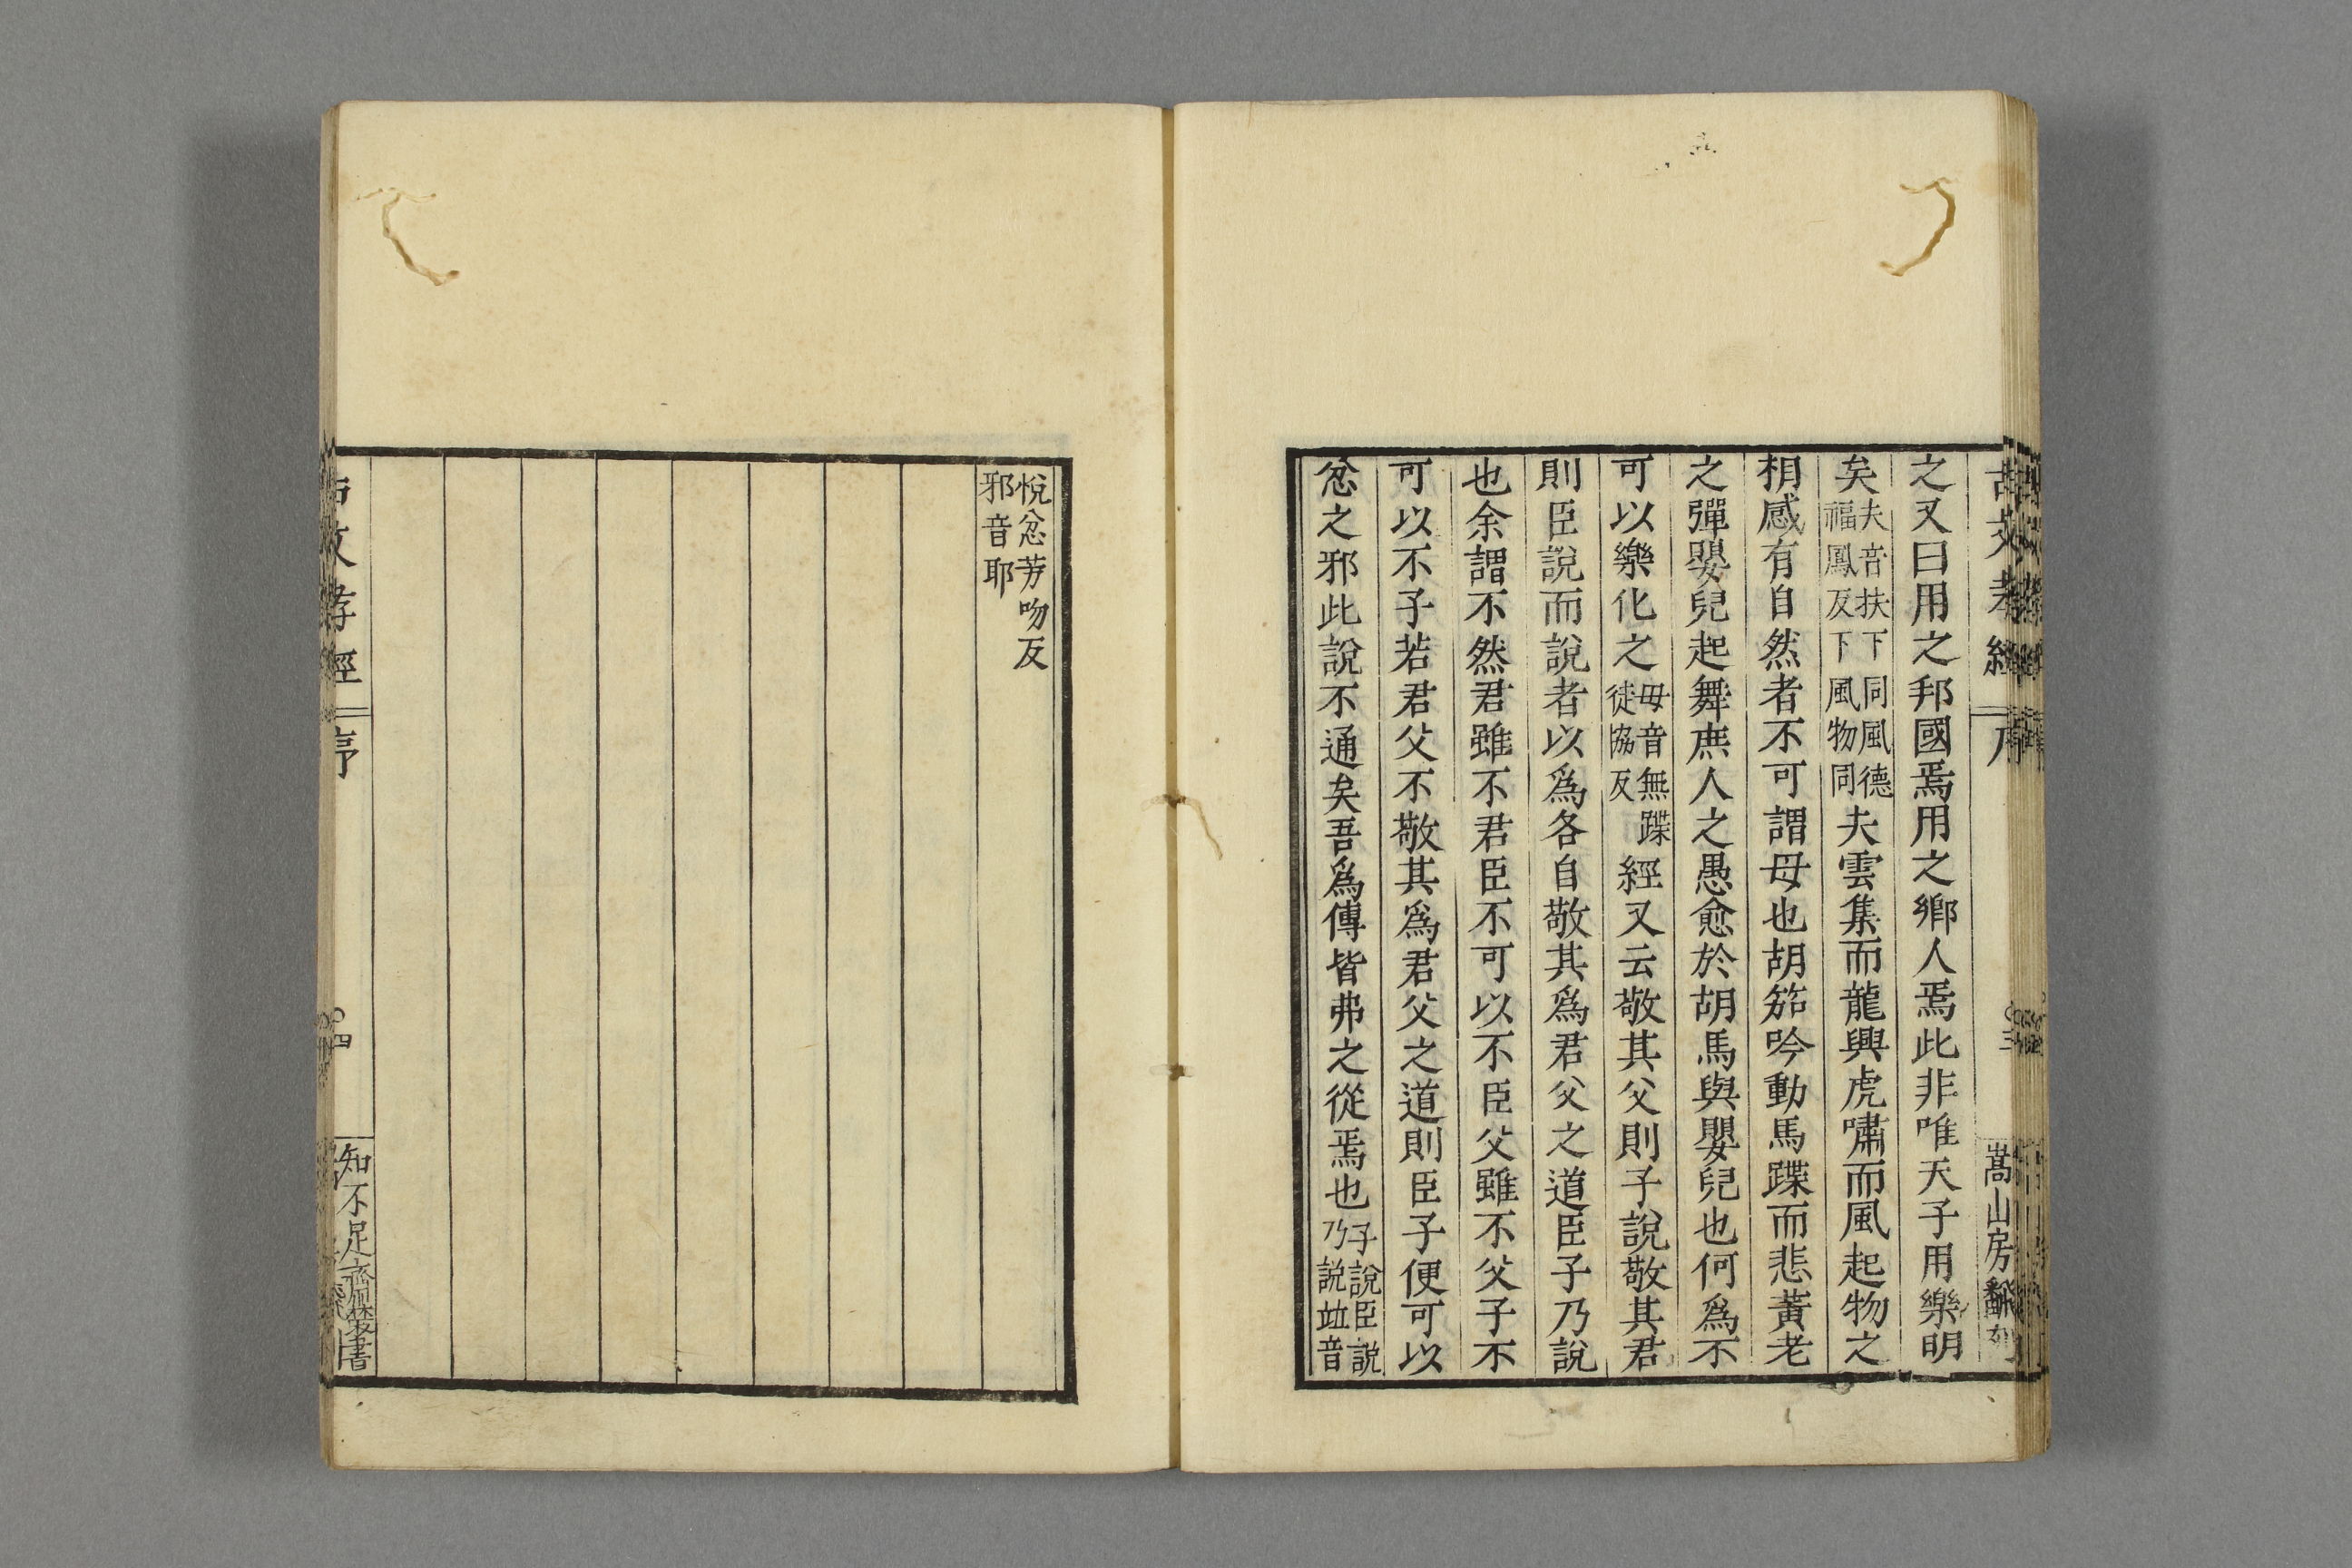 古文孝經
序
三
嵩山房
之又曰用之邦國焉用之鄉人焉此非唯天子用樂明
矣夫音扶下同風德
福鳳反下風物同夫雲集而龍興虎嘯而風起物之
相感有自然者不可謂毋也胡笳吟動馬蹀而悲黃老
之彈嬰兒起舞庶人之愚愈於胡馬與嬰兒也何爲不
可以樂化之毋音無蹀
徒協反經又云敬其父則子說敬其君
則臣說而說者以爲各自敬其爲君父之道臣子乃說
也余謂不然君雖不君臣不可以不臣父雖不父子不
可以不子若君父不敬其爲君父之道則臣子便可以
忿之邪此說不通矣吾爲傳皆弗之從焉也子說臣說
乃説竝音
悅忿芳吻反
邪音耶
古文孝經
序
四
知不足齋叢書